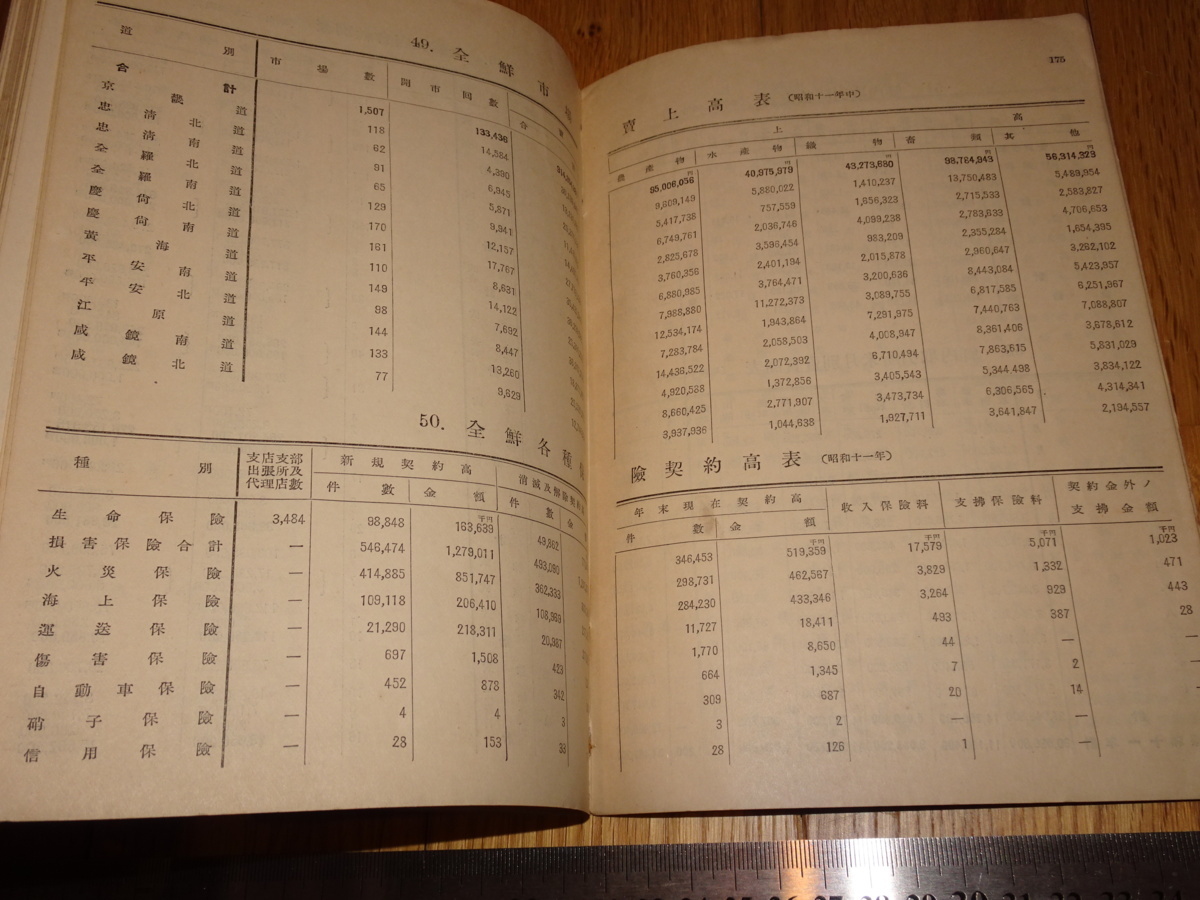 49. 全鮮市場
道別 市場數 開市回數 合
合計 1,507 133,436
京畿道 118 14,584
忠清北道 62 4,390
忠清南道 91 6,945
全羅北道 65 5,871
全羅南道 129 9,941
慶尙北道 170 12,157
慶尙南道 161 17,767
黃海道 110 8,631
平安南道 149 14,122
平安北道 98 7,692
江原道 144 8,447
咸鏡南道 133 13,260
咸鏡北道 77 9,629
50. 全鮮各種
種別 支店支部出張所及代理店數 新規契約高 消滅及解除契約
件數 金額 件數 金
千円
生命保險 3,484 98,848 163,639 49,862
損害保險合計 — 546,474 1,279,011 493,090
火災保險 — 414,885 851,747 362,333
海上保險 — 109,118 206,410 108,969
運送保險 — 21,290 218,311 20,987
傷害保險 — 697 1,508 423
自動車保險 — 452 878 342
硝子保險 — 4 4 3
信用保險 — 28 153 33
175
賣上高表 (昭和十一年中)
上高
農產物 水產物 織物 畜類 其他
円 円 円 円 円
55,006,056 40,975,979 43,273,680 98,784,943 56,314,323
9,609,149 5,880,022 1,410,237 13,750,483 5,489,954
5,417,738 757,559 1,656,323 2,715,533 2,583,827
6,749,761 2,036,746 4,099,238 2,783,833 4,706,653
2,825,678 3,596,454 983,209 2,355,284 1,654,395
3,760,356 2,401,194 2,015,878 2,960,647 3,282,102
6,880,985 3,764,471 3,200,636 8,443,084 5,423,957
7,988,880 11,272,373 3,089,755 6,817,585 6,251,967
12,534,174 1,943,864 7,291,975 7,440,763 7,088,807
7,283,784 2,058,503 4,008,947 8,361,406 3,678,612
14,436,522 2,072,392 6,710,494 7,863,615 5,831,029
4,920,588 1,372,856 3,405,543 5,344,498 3,834,122
8,660,425 2,771,907 3,473,734 6,306,565 4,314,341
3,937,938 1,044,638 1,927,711 3,641,847 2,194,557
險契約高表 (昭和十一年)
年末現在契約高 收入保險料 支拂保險料 契約金外ノ支拂金額
件數 金額
千円 千円 千円 千円
346,453 519,359 17,579 5,071 1,023
298,731 462,567 3,829 1,332 471
284,230 433,346 3,264 929 443
11,727 18,411 493 387 28
1,770 8,650 44 —
664 1,345 7 2
309 687 20 14 —
3 2 —
28 126 1 —